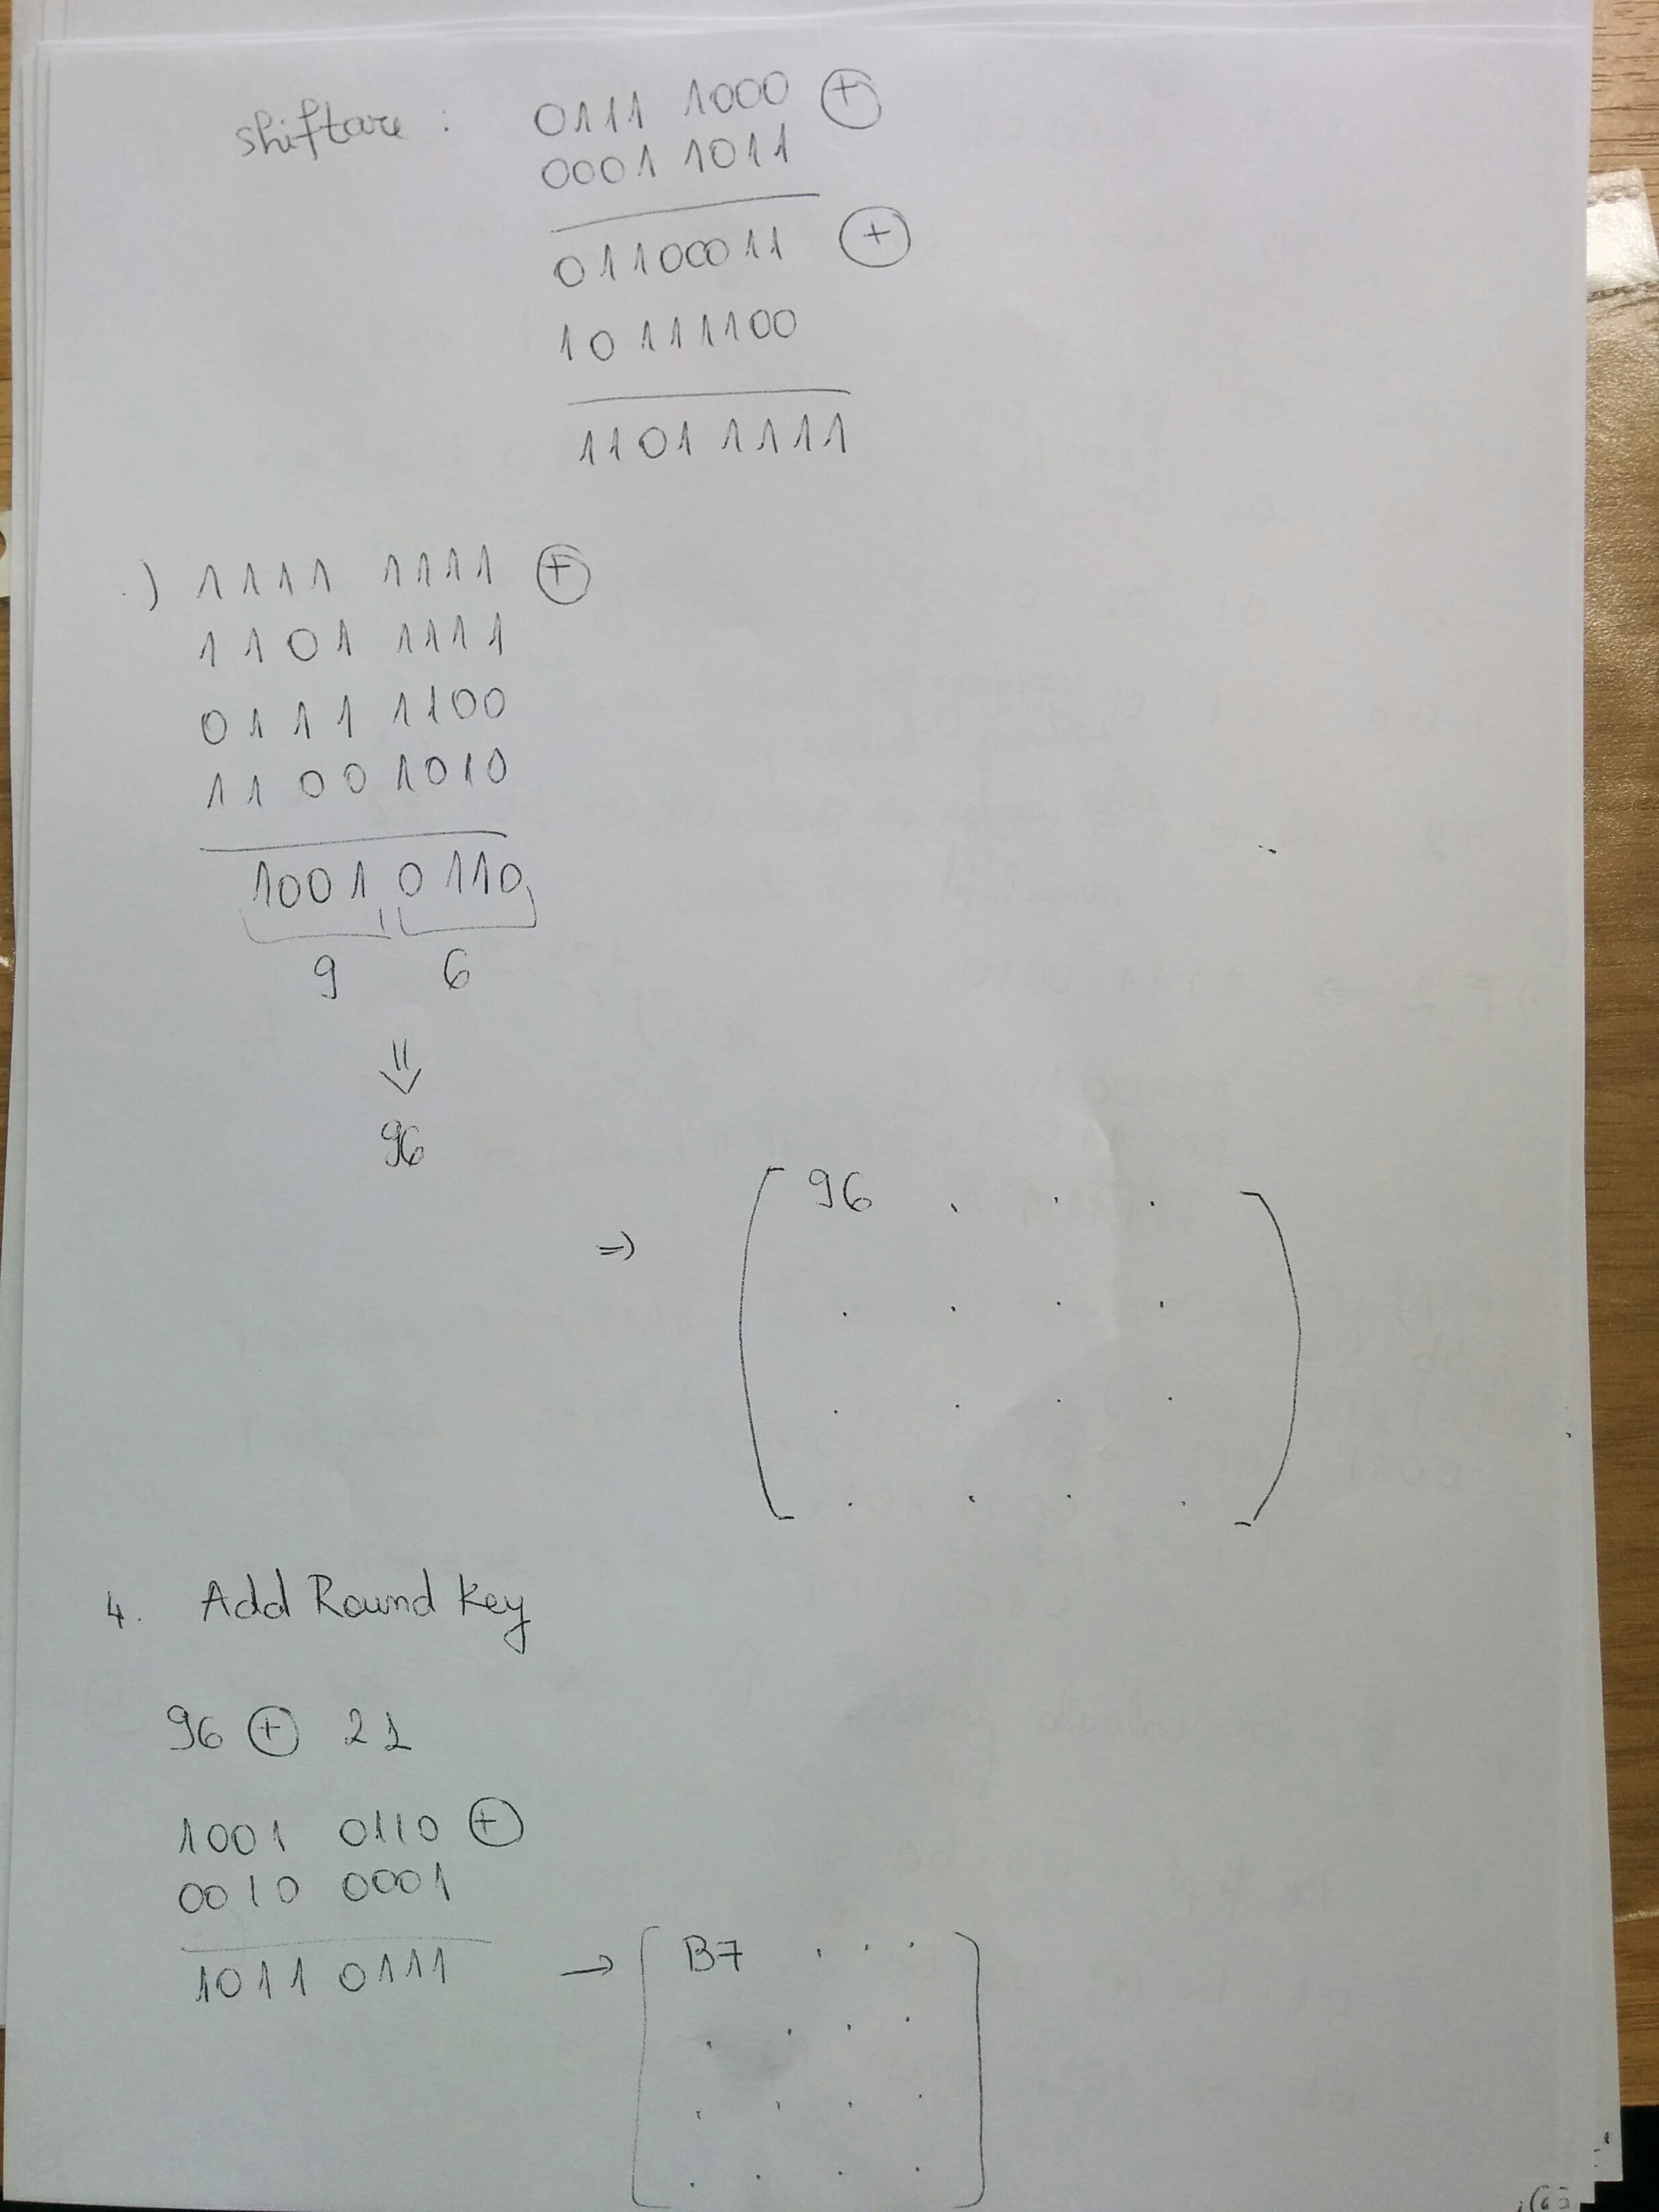 shiftare : 0111 1000 ⊕
0001 1011
01100011 ⊕
10111100
1101 1111
.) 1111 1111 ⊕
1101 1111
0111 1100
1100 1010
1001 0110
9 6
⇓
96
⇒ 96 . . .
. . . .
. . . .
. . . .
4. Add Round Key
96 ⊕ 21
1001 0110 ⊕
0010 0001
1011 0111 → B7 . . .
. . . .
. . . .
. . . .